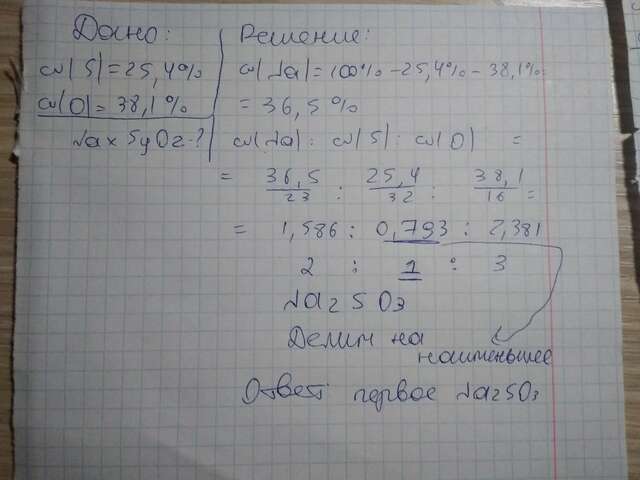 Дано:
w(S)=25,4%
w(O)=38,1%
NaxSyOz-?
Решение:
w(Na)=100%-25,4%-38,1%=
=36,5%
w(Na): w(S): w(O) =
= 36,5/23 : 25,4/32 : 38,1/16 =
= 1,586 : 0,793 : 2,381
2 : 1 : 3
Na2SO3
Делим на
наименьшее
Ответ: первое Na2SO3